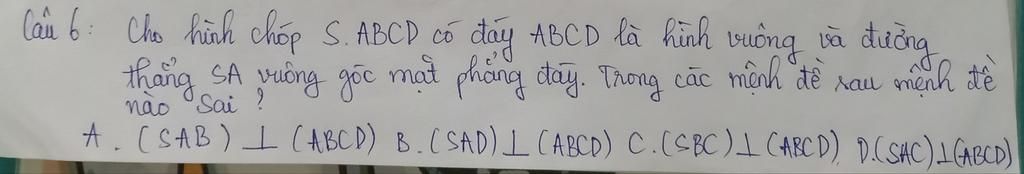 Câu 6: Cho hình chóp S.ABCD có đáy ABCD là hình vuông và đường
thẳng SA vuông góc mặt phẳng đáy. Trong các mệnh đề sau mệnh đề
nào sai?
A. (SAB) ⊥ (ABCD) B. (SAD) ⊥ (ABCD) C. (SBC) ⊥ (ABCD) D. (SAC) ⊥ (ABCD)